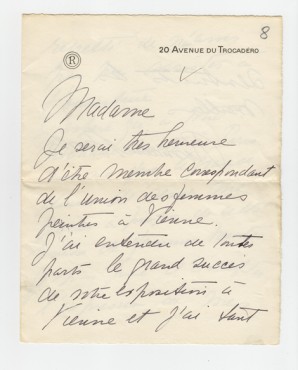 8
R
20 AVENUE DU TROCADÉRO
Madame
Je serai très heureuse
d'être membre correspondant
de l'union des femmes
peintres à Vienne.
J'ai entendu de toutes
parts le grand succès
de votre exposition à
Vienne et j'ai tant